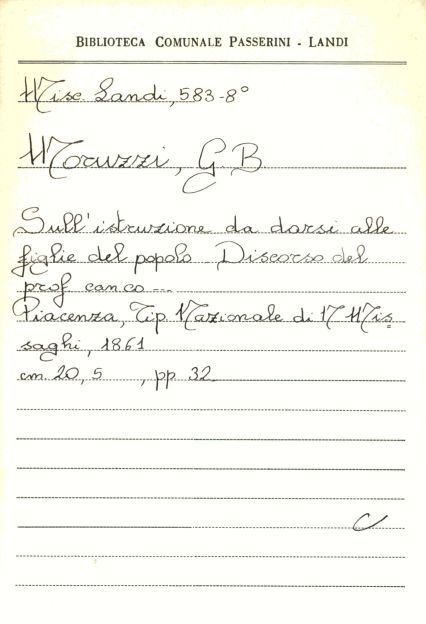 BIBLIOTECA COMUNALE PASSERINI - LANDI
Misc Landi, 583-8°
Moruzzi, G.B.
Sull'istruzione da darsi alle
figlie del popolo. Discorso del
prof can.co ---
Piacenza, Tip. Nazionale di N Mis=
saghi, 1861
cm. 20,5 , pp 32
C